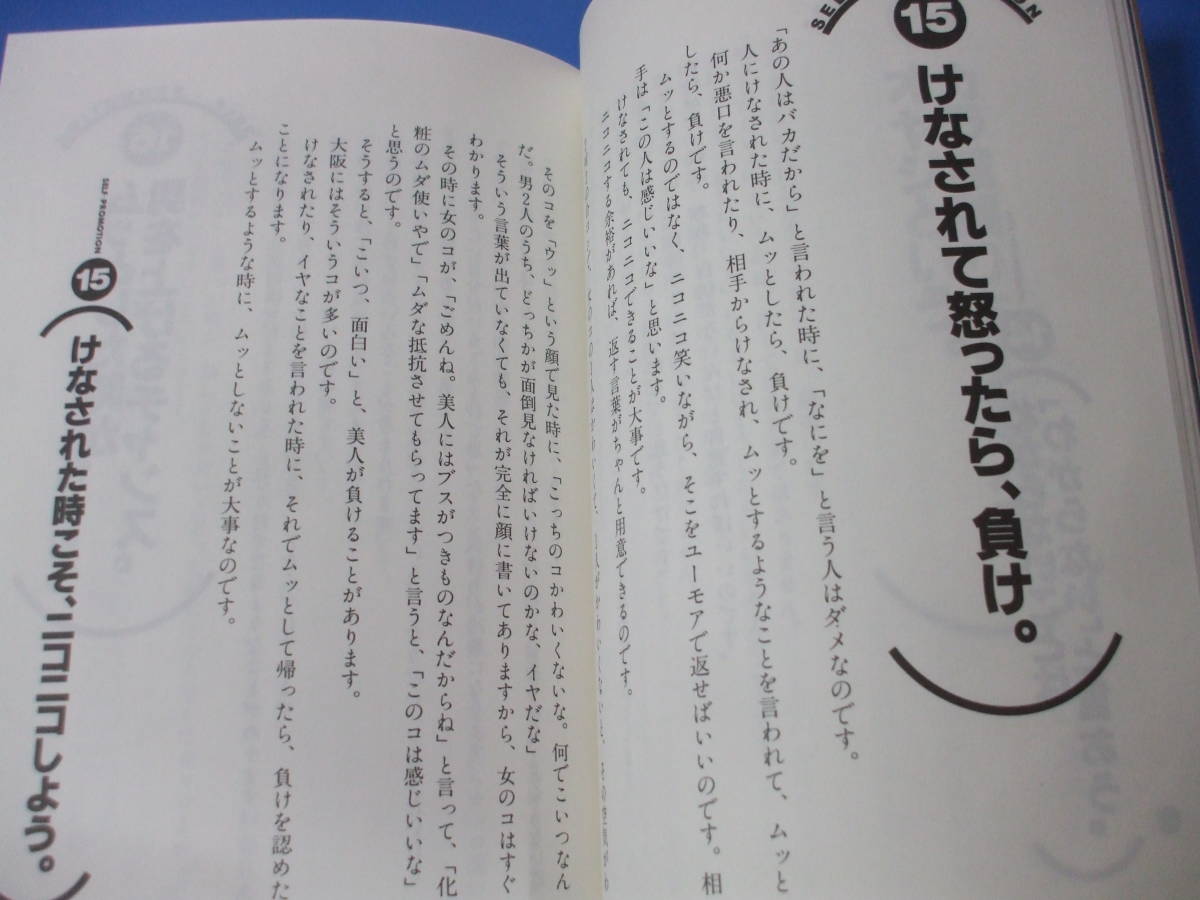 15
けなされて怒ったら、負け。
「あの人はバカだから」と言われた時に、「なにを」と言う人はダメなのです。
人にけなされた時に、ムッとしたら、負けです。
何か悪口を言われたり、相手からけなされ、ムッとするようなことを言われて、ムッと
したら、負けです。
ムッとするのではなく、ニコニコ笑いながら、そこをユーモアで返せばいいのです。相
手は「この人は感じいいな」と思います。
けなされても、ニコニコできることが大事です。
ニコニコする余裕があれば、返す言葉がちゃんと用意できるのです。
そのコを「ウッ」という顔で見た時に、「こっちのコかわいくないな。何でこいつなん
だ。男2人のうち、どっちかが面倒見なければいけないのかな、イヤだな」
そういう言葉が出ていなくても、それが完全に顔に書いてありますから、女のコはすぐ
わかります。
その時に女のコが、「ごめんね。美人にはブスがつきものなんだからね」と言って、「化
粧のムダ使いやで」「ムダな抵抗させてもらってます」と言うと、「このコは感じいいな」
と思うのです。
そうすると、「こいつ、面白い」と、美人が負けることがあります。
大阪にはそういうコが多いのです。
けなされたり、イヤなことを言われた時に、それでムッとして帰ったら、負けを認めた
ことになります。
ムッとするような時に、ムッとしないことが大事なのです。
SELF PROMOTION
15
けなされた時こそ、ニコニコしよう。